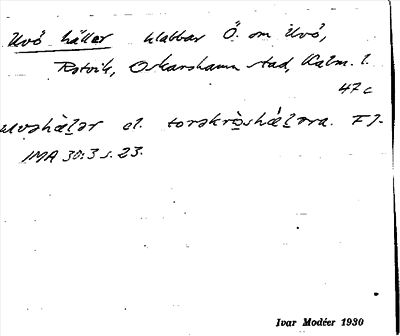 Uvö hällar klabbar Ö. om Uvö,
Rotvik, Oskarshamn stad, Kalm. l.
47c
uvəhàl̥ər el. torəkrò̤shál̥əra. FJ.
IMA 30:3 s. 23.
Ivar Modéer 1930